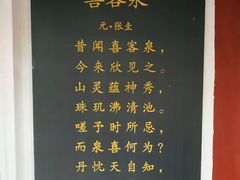 喜客泉
元·张圭
昔闻喜客泉，
今来欣见之。
山灵蕴神秀，
珠玑沸清池。
嗟子时所忌，
而泉喜何为？
丹忱天自知，